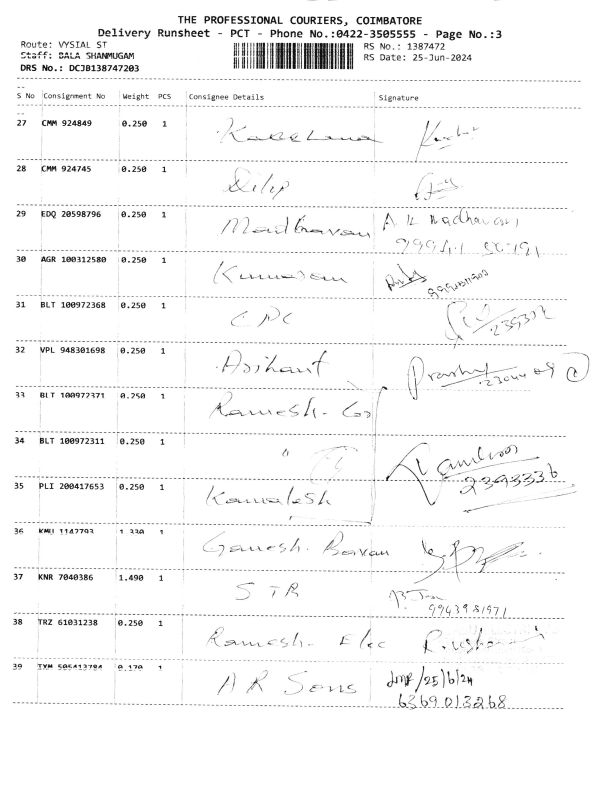 THE PROFESSIONAL COURIERS, COIMBATORE
Delivery Runsheet - PCT - Phone No.:0422-3505555 - Page No.:3
Route: VYSIAL ST
RS No.: 1387472
Staff: BALA SHANMUGAM
RS Date: 25-Jun-2024
DRS No.: DCJB138747203
S No Consignment No Weight PCS Consignee Details Signature
27 CMM 924849 0.250 1
28 CMM 924745 0.250 1 Dilip
29 EDQ 20598796 0.250 1 Madhavan
30 AGR 100312580 0.250 1 Kumaran
31 BLT 100972368 0.250 1 CPC
32 VPL 948301698 0.250 1 Arihant
33 BLT 100972371 0.250 1 Ramesh. Co
34 BLT 100972311 0.250 1 "
2393336
35 PLI 200417653 0.250 1 Kamalesh
36 KMU 1142793 1.330 1 Ganesh. Bavan
37 KNR 7040386 1.490 1 STR
9943981971
38 TRZ 61031238 0.250 1 Ramesh- Elec
39 TYM 505413784 0.170 1 AR Sons 25/6/24
6369013268